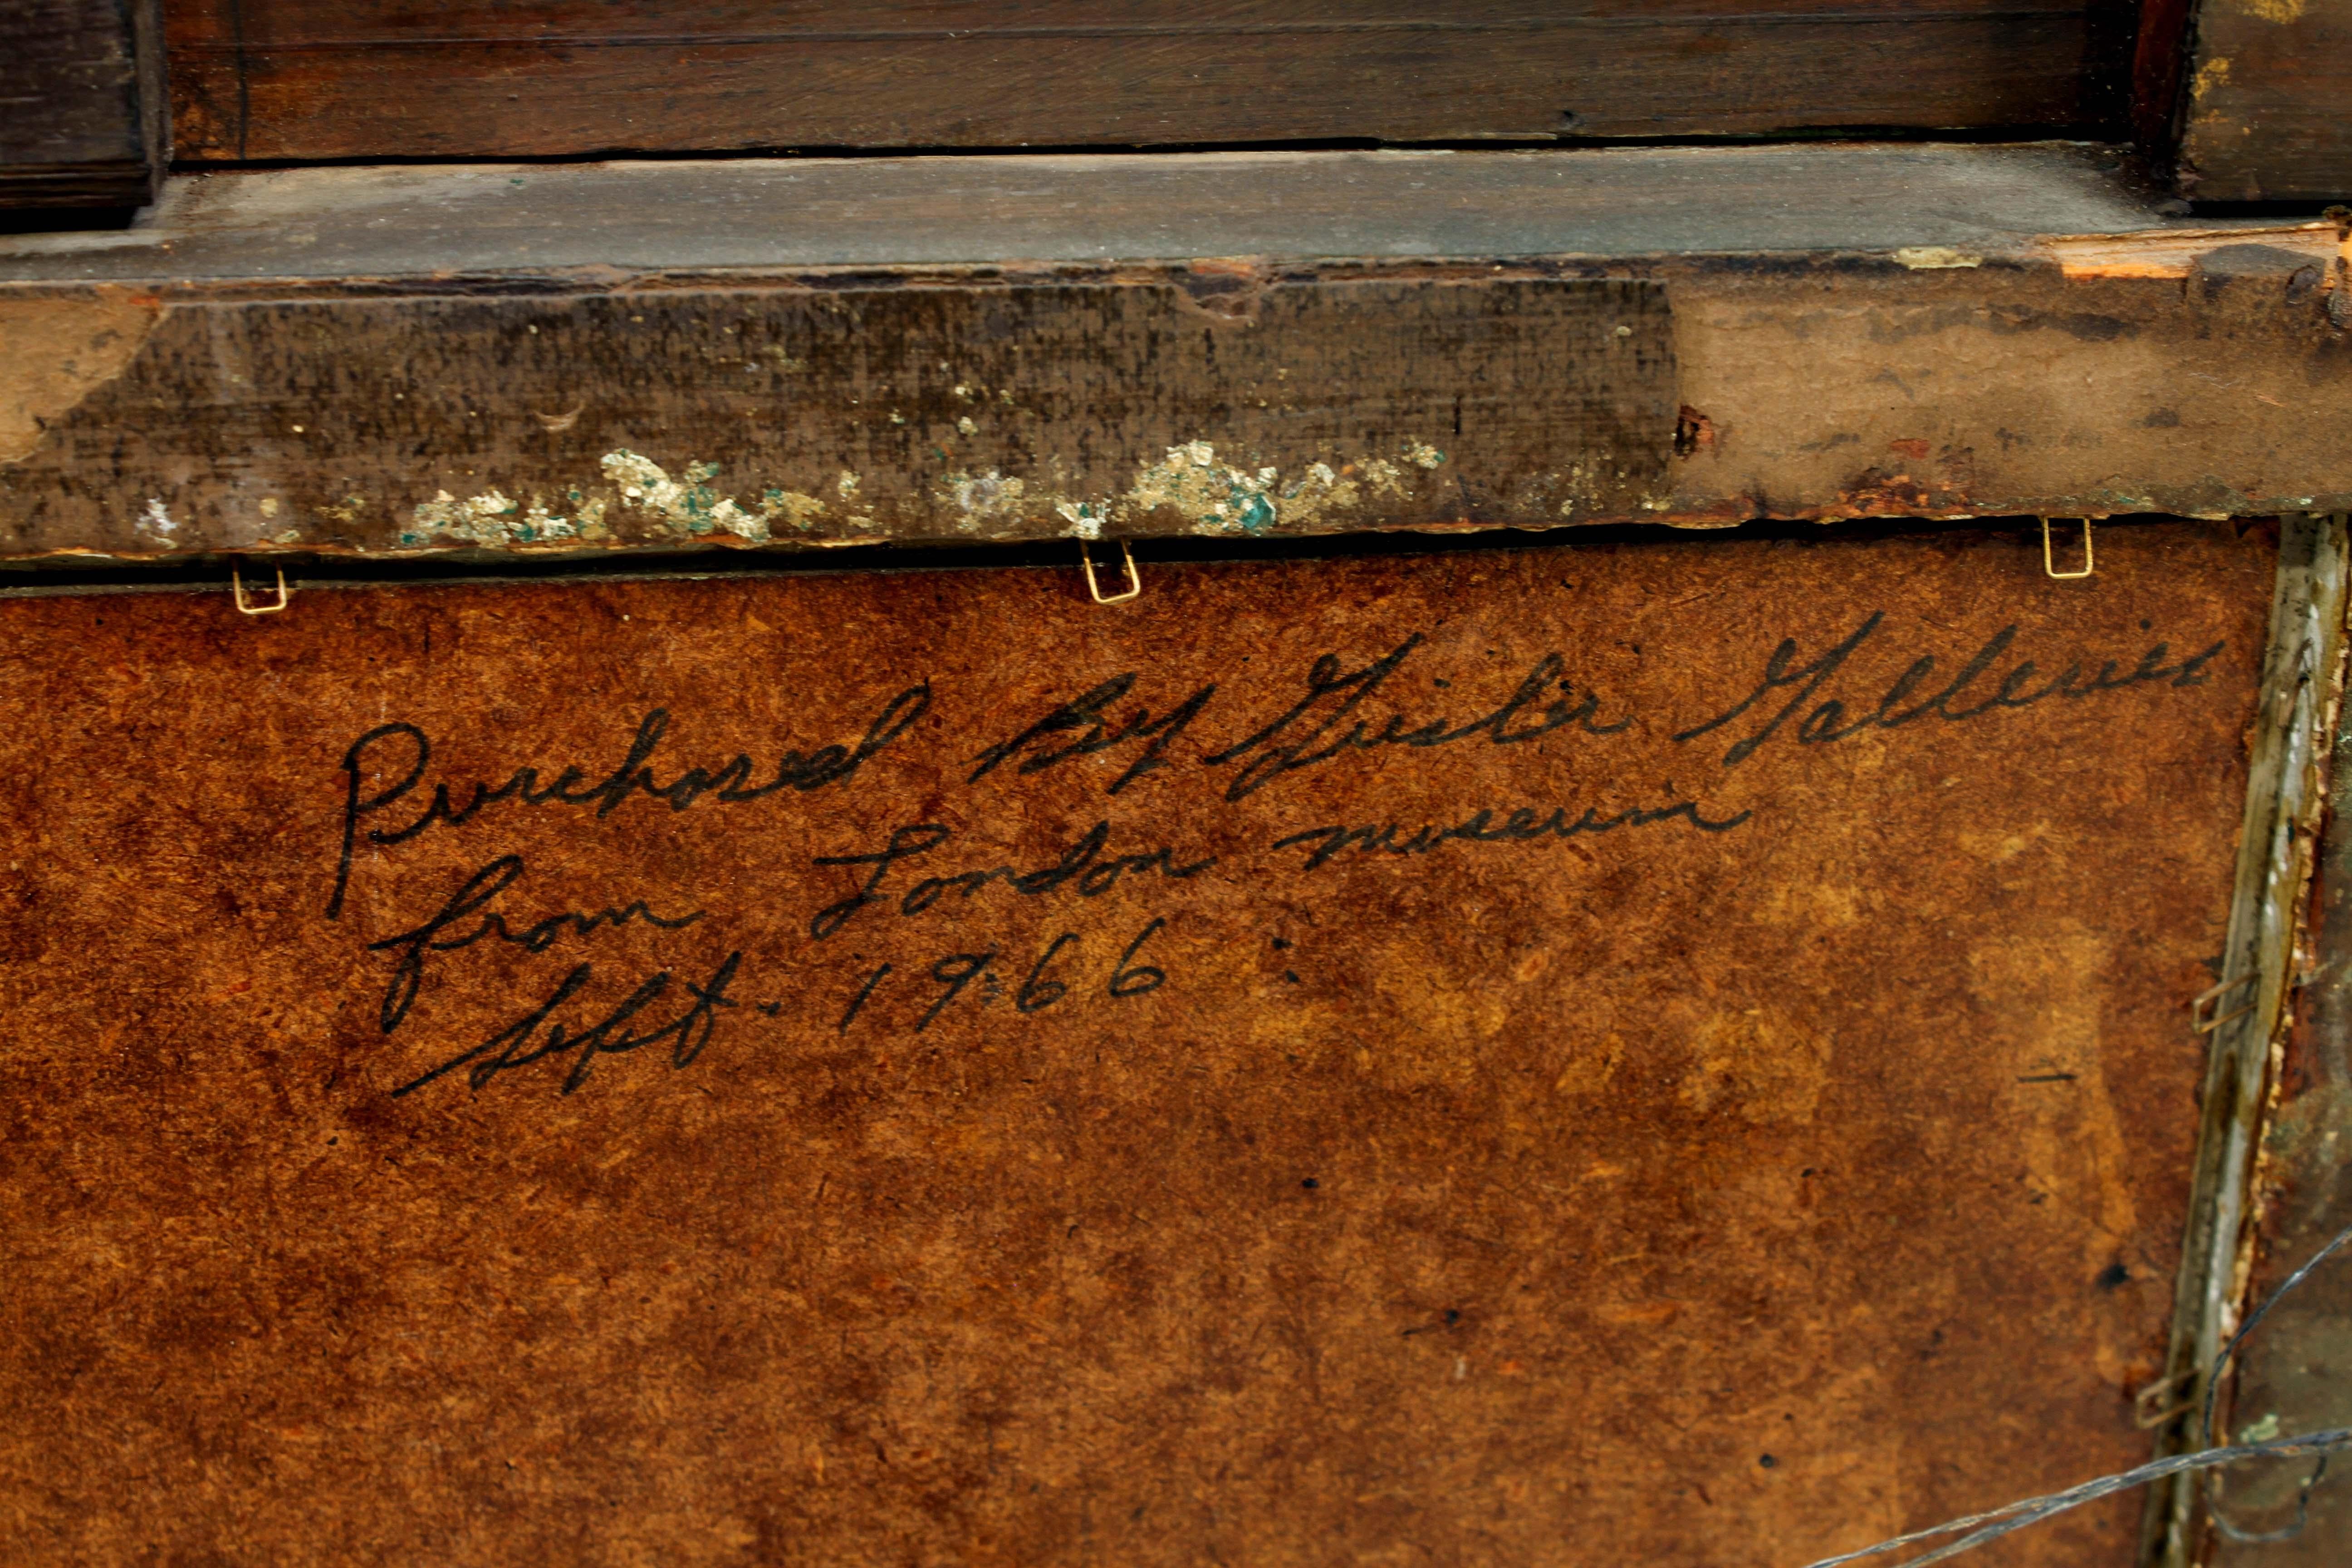 Purchased By Geisler Galleries
from London museum
Sept. 1966